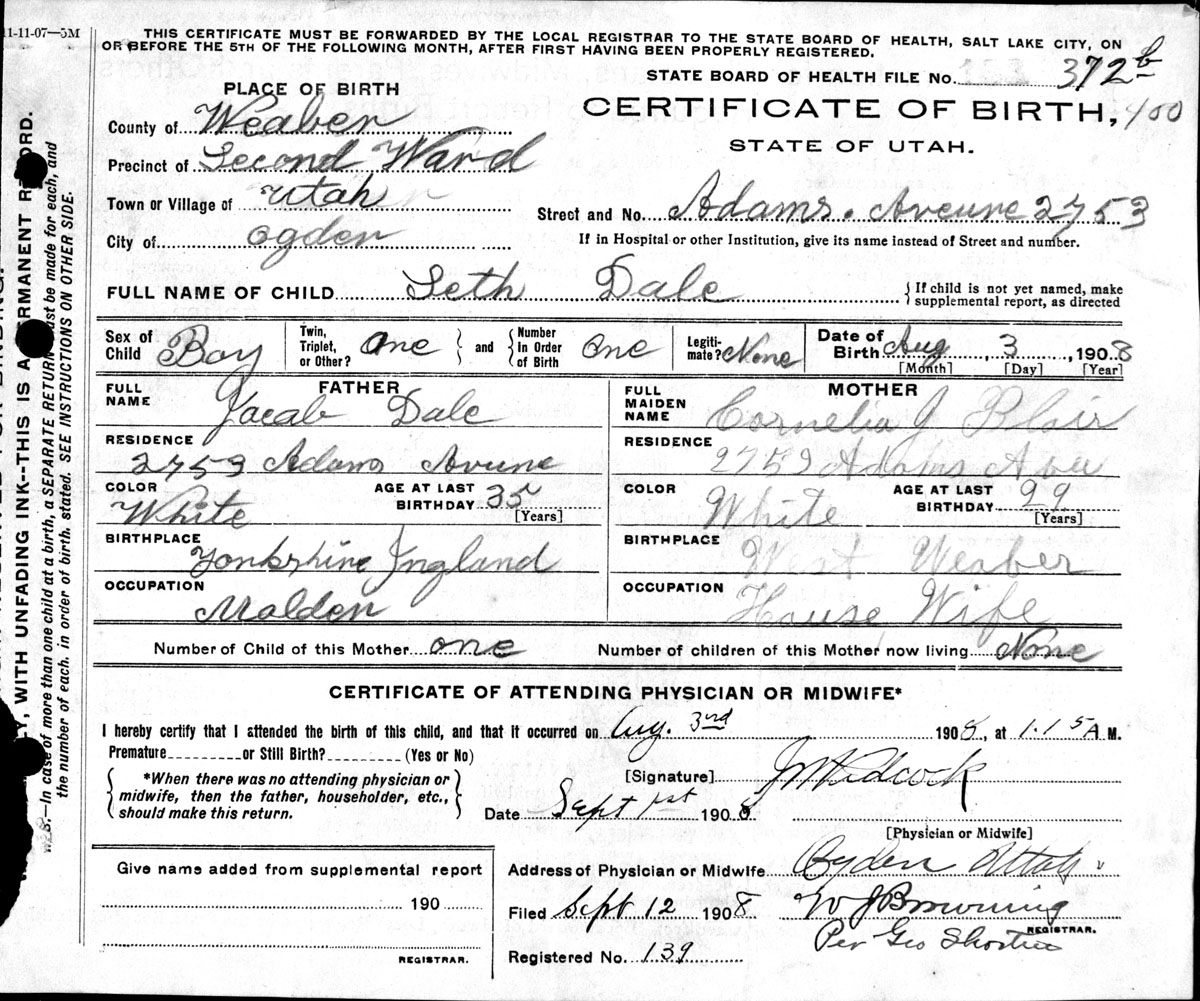 11-11-07—5M
THIS CERTIFICATE MUST BE FORWARDED BY THE LOCAL REGISTRAR TO THE STATE BOARD OF HEALTH, SALT LAKE CITY, ON
OR BEFORE THE 5TH OF THE FOLLOWING MONTH, AFTER FIRST HAVING BEEN PROPERLY REGISTERED.
STATE BOARD OF HEALTH FILE No. 372 b
PLACE OF BIRTH
CERTIFICATE OF BIRTH, 400
STATE OF UTAH.
County of Weaber
Precinct of Second Ward
Town or Village of Utah
Street and No. Adams. Aveune 2753
City of Ogden
If in Hospital or other Institution, give its name instead of Street and number.
FULL NAME OF CHILD Seth Dale
If child is not yet named, make
supplemental report, as directed
Sex of Child Boy Twin, Triplet, or Other? One and Number In Order of Birth One Legiti-mate? None Date of Birth Aug 3, 1908
[Month] [Day] [Year]
FATHER
FULL NAME Jacab Dale
RESIDENCE
2753 Adams Avune
COLOR White AGE AT LAST BIRTHDAY 35
[Years]
BIRTHPLACE Yonkshire Ingland
OCCUPATION Molden
MOTHER
FULL MAIDEN NAME Cornelia J Blair
RESIDENCE 2753 Adams Avee
COLOR White AGE AT LAST BIRTHDAY 29
[Years]
BIRTHPLACE West Weaber
OCCUPATION House Wife
Number of Child of this Mother one Number of children of this Mother now living None
CERTIFICATE OF ATTENDING PHYSICIAN OR MIDWIFE*
I hereby certify that I attended the birth of this child, and that it occurred on Aug. 3rd 1908, at 1.15 A M.
Premature or Still Birth? (Yes or No)
*When there was no attending physician or
midwife, then the father, householder, etc.,
should make this return.
[Signature]
Date Sept 1st 1908
[Physician or Midwife]
Give name added from supplemental report
190
REGISTRAR.
Address of Physician or Midwife Ogden Utah
Filed Sept 12 1908 W J Browning
REGISTRAR.
Per Geo
Registered No. 139
LY, WITH UNFADING INK--THIS IS A PERMANENT RECORD.
N.B.—In case of more than one child at a birth, a SEPARATE RETURN must be made for each, and
the number of each, in order of birth, stated. SEE INSTRUCTIONS ON OTHER SIDE.